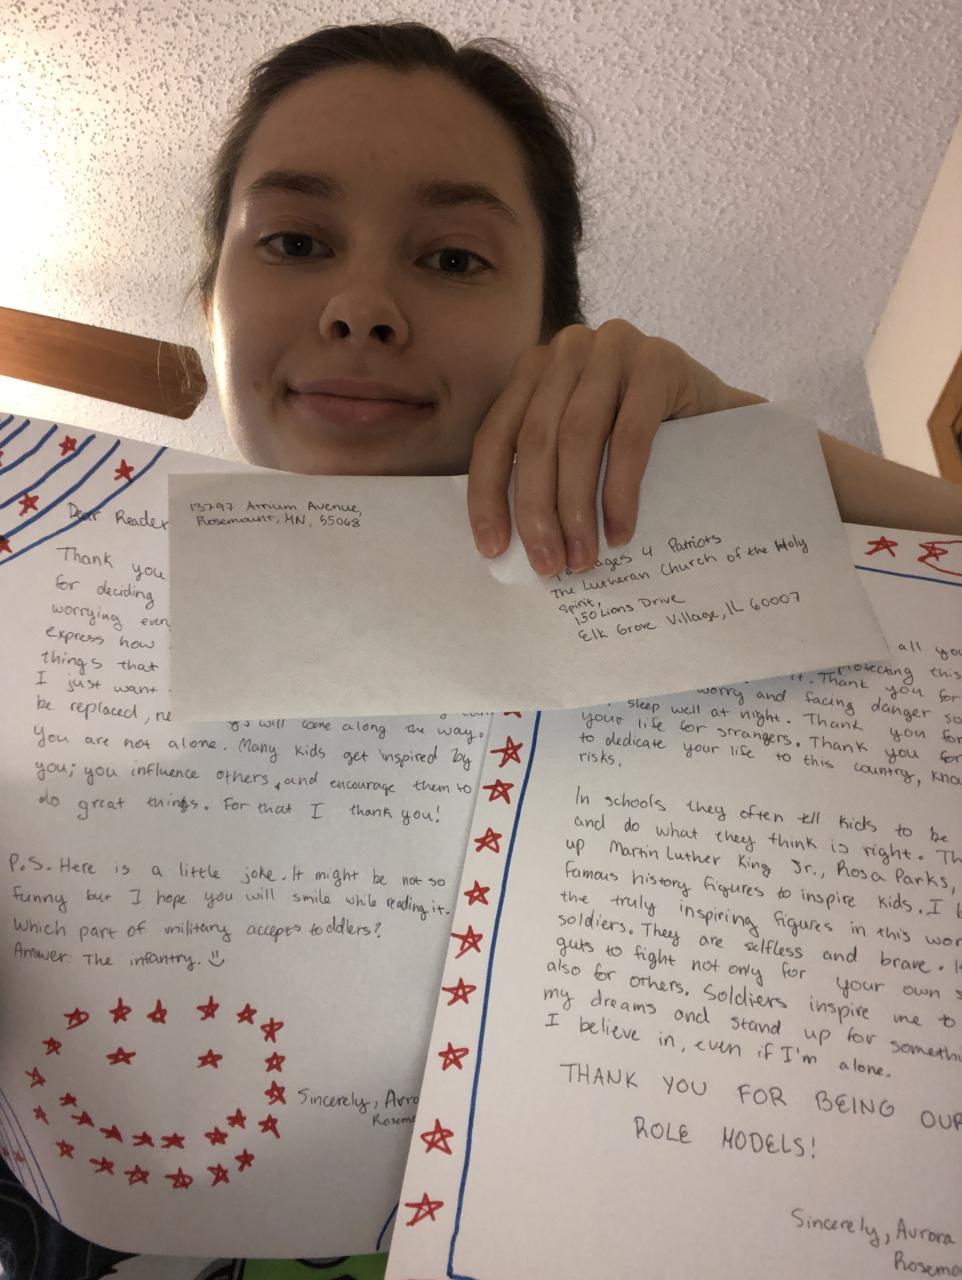 13797 Atrium Avenue,
Rosemount, MN, 55068
ages 4 Patriots
The Lutheran Church of the Holy
Spirit,
150 Lions Drive
Elk Grove Village, IL 60007
Dear Reader
Thank you
for deciding
worrying
express how
things that
I just want
be replaced,
will come along the way.
you are not alone. Many kids get inspired by
you; you influence others, and encourage them to
do great things. For that I thank you!
P.S. Here is a little joke. It might be not so
funny but I hope you will smile while reading it.
Which part of military accepts toddlers?
Answer: The infantry.
Sincerely,
all you
protecting this
it. Thank you for
worry and facing danger so
sleep well at night. Thank you for
your life for strangers. Thank you for
to dedicate your life to this country,
risks.
In schools they often tell kids to be
and do what they think is right.
up Martin Luther King Jr., Rosa Parks,
famous history figures to inspire kids. I
the truly inspiring figures in this
soldiers. They are selfless and brave.
guts to fight not only for your own
also for others. Soldiers inspire me to
my dreams and stand up for
I believe in, even if I'm alone.
THANK YOU FOR BEING OUR
ROLE MODELS!
Sincerely, Avrora